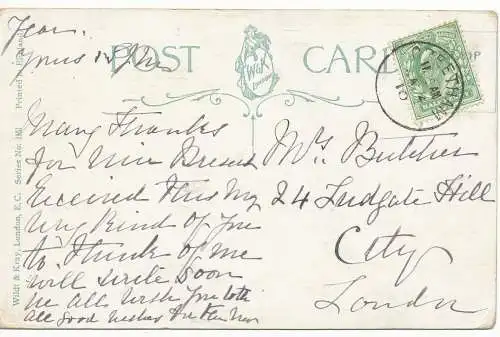 Year
POST CARD
W&K
London
Many Thanks
for Nice Present
Received this Mg
Very Kind of you
to Think of me
will write soon
we all wish you both
all good wishes for the New
Mrs Butcher
24 Ludgate Hill
City
London
Wildt & Kray, London, E.C. Series No. Printed in